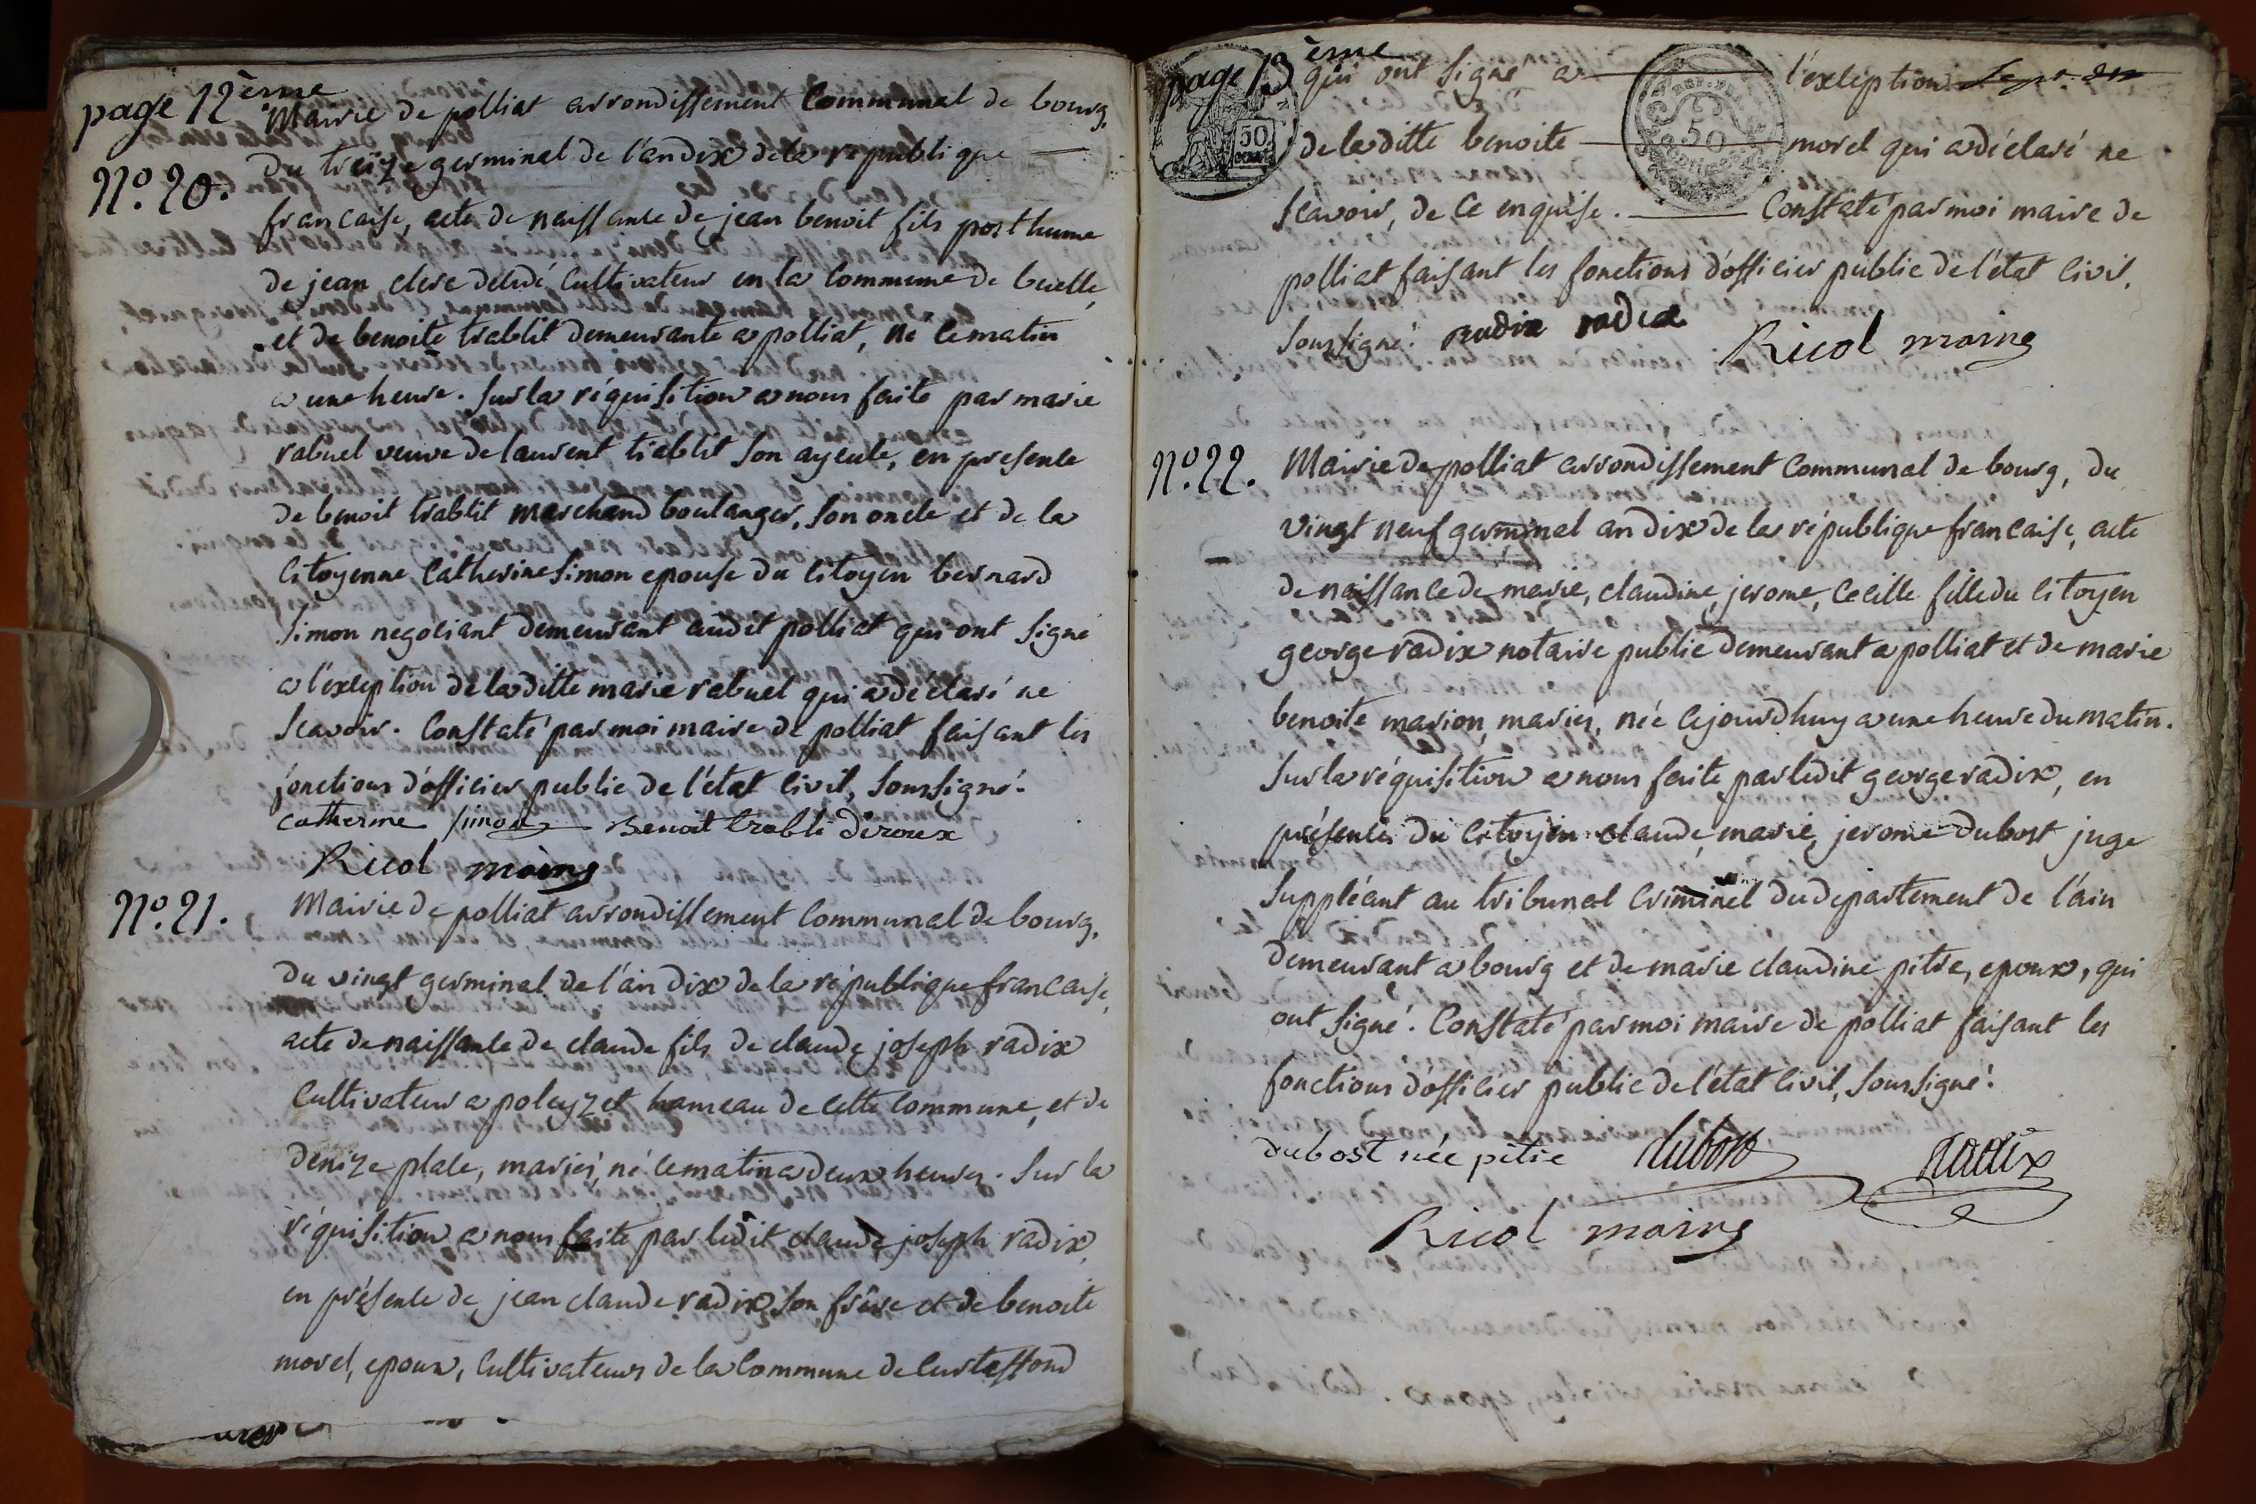 page 12ème
Mairie de polliat arrondissement Communal de bourg,
N.º 20.
du treize germinal de l'an dix de la république
francaise, acte de naissance de jean benoit fils posthume
de jean clere dédé Cultivateur en la Commune de buelle,
et de benoite trablit demeurante a polliat, né ce matin
a une heure. Sur la réquisition a nous faite par marie
rabuel veuve de laurent trablit son ayeule, en presence
de benoit trablit marchand boulanger, son oncle et de la
Citoyenne Catherine Simon epouse du Citoyen bernard
Simon negociant demeurant audit polliat qui ont signé
a l'exception de laditte marie rabuel qui a déclaré ne
Scavoir. Constaté par moi maire de polliat faisant les
fonctions d'officier public de l'état Civil, Soussigné.
catherine simon Benoit trabli diroux
Ricol maire
N.º 21.
Mairie de polliat arrondissement Communal de bourg,
du vingt germinal de l'an dix de la république francaise,
acte de naissance de claude fils de claude joseph radix
Cultivateur a poleyzet hameau de cette Commune, et de
denize place, mariés, né ce matin a deux heures. Sur la
réquisition a nous faite par ledit claude joseph radix,
en présence de jean claude radix, son frère et de benoite
morel, epoux, Cultivateurs de la Commune de Curtaffond
page 13ème
qui ont signé a l'exception
de laditte benoite morel qui a déclaré ne
Scavoir, de ce enquise. Constaté par moi maire de
polliat faisant les fonctions d'officier public de l'état Civil,
Soussigné. radix radix
Ricol maire
N.º 22.
Mairie de polliat arrondissement Communal de bourg, du
vingt neuf germinal an dix de la république francaise, acte
de naissance de marie, claudine, jerome, Cecille fille du Citoyen
george radix notaire public demeurant a polliat et de marie
benoite marion, mariés, née cejourdhuy a une heure du matin.
Sur la réquisition a nous faite par ledit george radix, en
présence du Citoyen claude, marie, jerome dubost juge
Suppléant au tribunal Criminel du departement de l'ain
demeurant a bourg et de marie claudine pitre, epoux, qui
ont signé. Constaté par moi maire de polliat faisant les
fonctions d'officier public de l'état Civil, Soussigné.
dubost née pitre dubost radix
Ricol maire